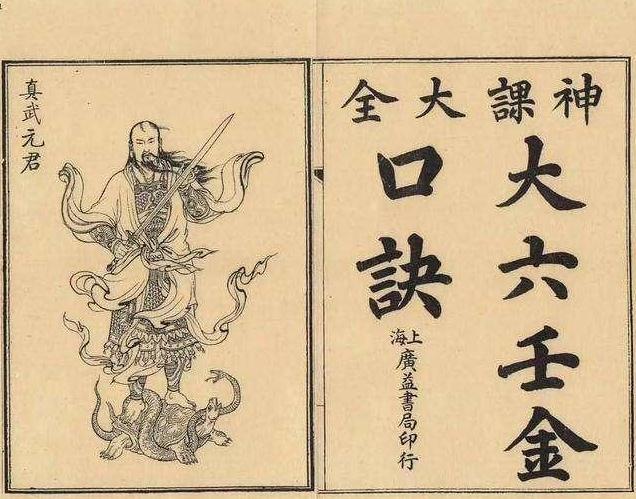 神課大全
大六壬金
口訣
上海
廣益書局印行
真武元君